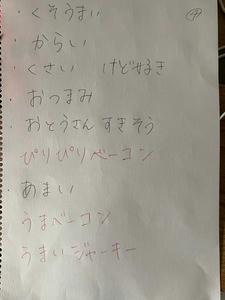 ・くそうまい
・からい
・くさい けど好き
・おつまみ
・おとうさん すきそう
ぴりぴりベーコン
・あまい
うまベーコン
うまいジャーキー